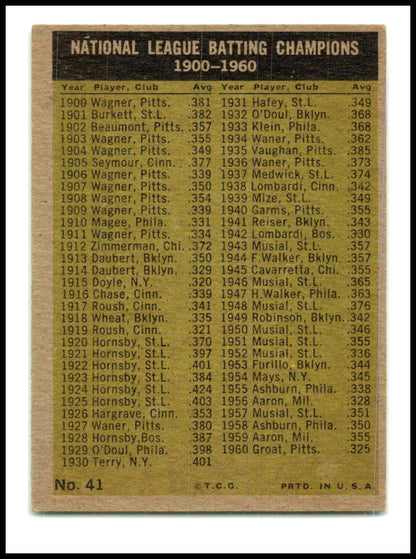 NATIONAL LEAGUE BATTING CHAMPIONS
1900-1960
Year Player, Club Avg
1900 Wagner, Pitts. .381
1901 Burkett, St.L. .382
1902 Beaumont, Pitts. .357
1903 Wagner, Pitts. .355
1904 Wagner, Pitts. .349
1905 Seymour, Cinn. .377
1906 Wagner, Pitts. .339
1907 Wagner, Pitts. .350
1908 Wagner, Pitts. .354
1909 Wagner, Pitts. .339
1910 Magee, Phila. .331
1911 Wagner, Pitts. .334
1912 Zimmerman, Chi. .372
1913 Daubert, Bklyn. .350
1914 Daubert, Bklyn. .329
1915 Doyle, N.Y. .320
1916 Chase, Cinn. .339
1917 Roush, Cinn. .341
1918 Wheat, Bklyn. .335
1919 Roush, Cinn. .321
1920 Hornsby, St.L. .370
1921 Hornsby, St.L. .397
1922 Hornsby, St.L. .401
1923 Hornsby, St.L. .384
1924 Hornsby, St.L. .424
1925 Hornsby, St.L. .403
1926 Hargrave, Cinn. .353
1927 Waner, Pitts. .380
1928 Hornsby,Bos. .387
1929 O'Doul, Phila. .398
1930 Terry, N.Y. .401
Year Player, Club Avg
1931 Hafey, St.L. .349
1932 O'Doul, Bklyn. .368
1933 Klein, Phila. .368
1934 Waner, Pitts. .362
1935 Vaughan, Pitts. .385
1936 Waner, Pitts. .373
1937 Medwick, St.L. .374
1938 Lombardi, Cinn. .342
1939 Mize, St.L. .349
1940 Garms, Pitts. .355
1941 Reiser, Bklyn. .343
1942 Lombardi, Bos. .330
1943 Musial, St.L. .357
1944 F.Walker, Bklyn. .357
1945 Cavarretta, Chi. .355
1946 Musial, St.L. .365
1947 H.Walker, Phila. .363
1948 Musial, St.L. .376
1949 Robinson, Bklyn. .342
1950 Musial, St.L. .346
1951 Musial, St.L. .355
1952 Musial, St.L. .336
1953 Furillo, Bklyn. .344
1954 Mays, N.Y. .345
1955 Ashburn, Phila. .338
1956 Aaron, Mil. .328
1957 Musial, St.L. .351
1958 Ashburn, Phila. .350
1959 Aaron, Mil. .355
1960 Groat, Pitts. .325
No. 41 © T.C.G. PRTD. IN U.S.A.